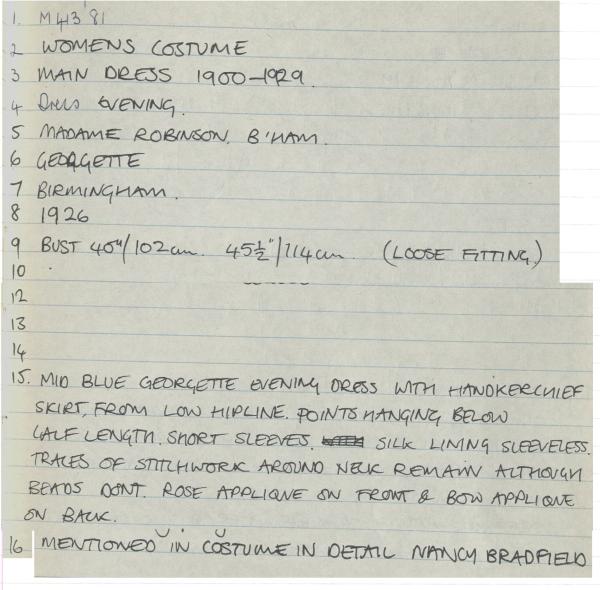 1. M43'81
2 WOMENS COSTUME
3 MAIN DRESS 1900-1929.
4 Dress EVENING.
5 MADAME ROBINSON, B'HAM.
6 GEORGETTE
7 BIRMINGHAM.
8 1926
9 BUST 40"/102cm. 45½"/114cm (LOOSE FITTING)
10
12
13
14
15. MID BLUE GEORGETTE EVENING DRESS WITH HANDKERCHIEF
SKIRT, FROM LOW HIPLINE. POINTS HANGING BELOW
CALF LENGTH. SHORT SLEEVES. SILK LINING SLEEVELESS.
TRACES OF STITCHWORK AROUND NECK REMAIN ALTHOUGH
BEADS DONT. ROSE APPLIQUE ON FRONT & BOW APPLIQUE
ON BACK.
16 MENTIONED IN COSTUME IN DETAIL NANCY BRADFIELD